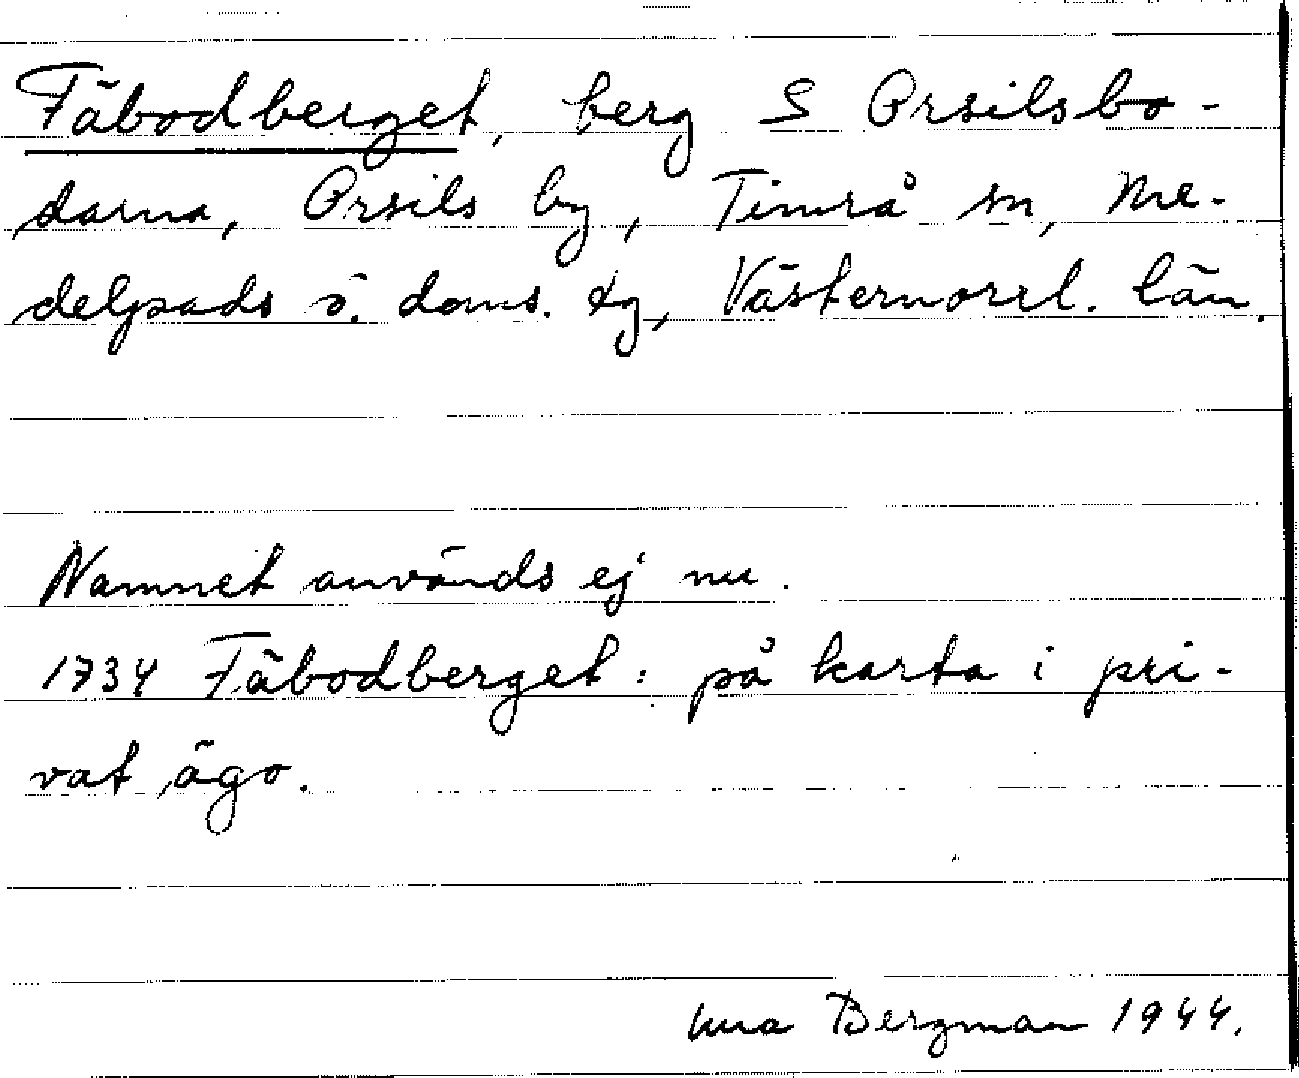 Fäbodberget, berg S Orsilsbo-
darna, Orsils by, Timrå sn, Me-
delpads ö. doms. dg, Västernorrl. län.
Namnet används ej nu.
1734 Fäbodberget: på karta i pri-
vat ägo.
Una Bergman 1944.